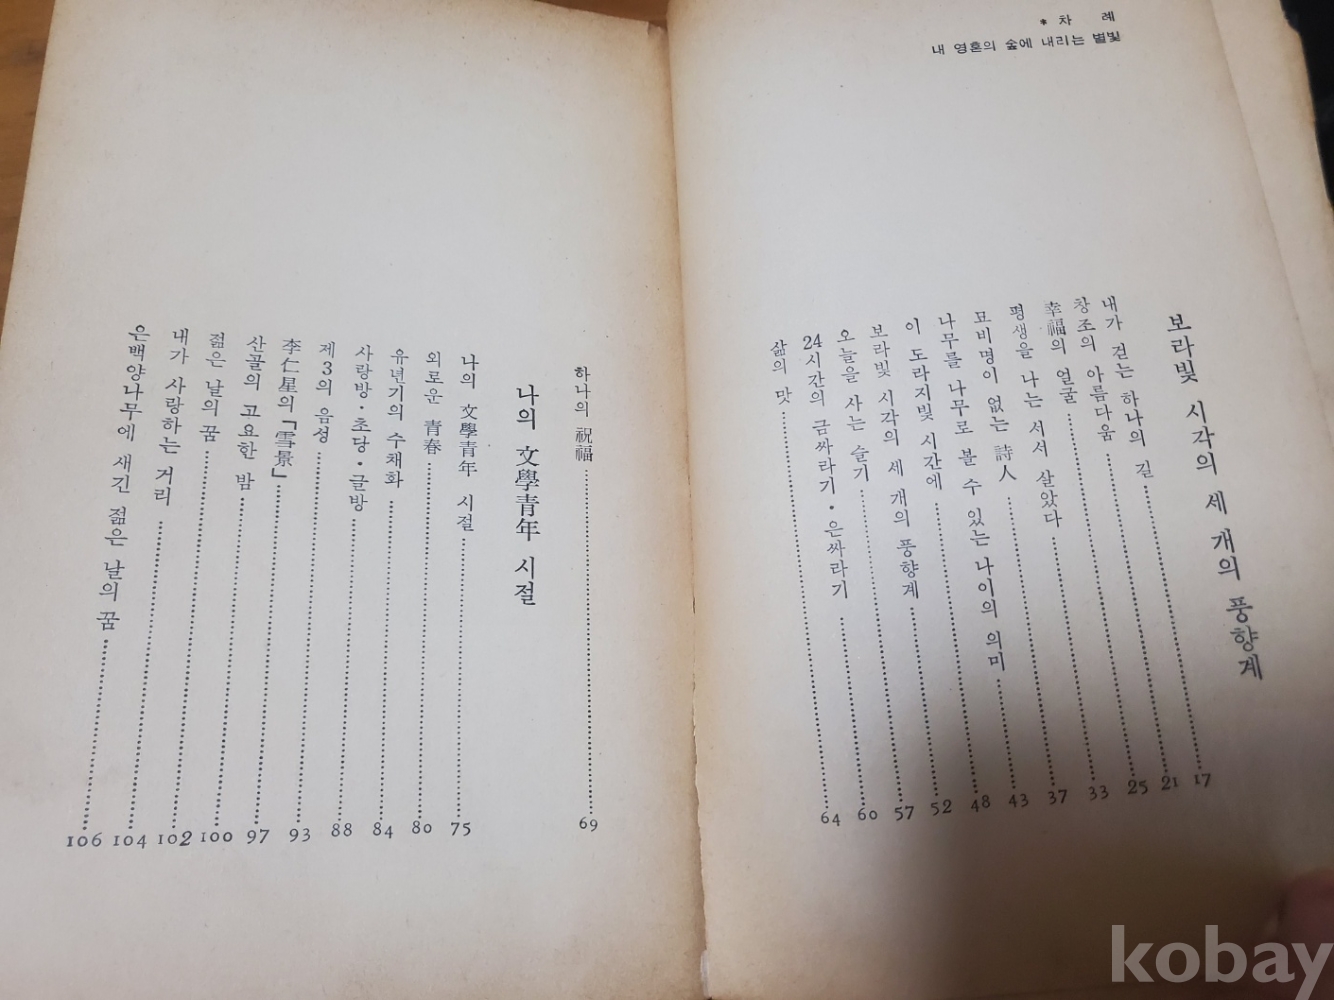 * 차 례
내 영혼의 숲에 내리는 별빛
보라빛 시각의 세 개의 풍향계
내가 걷는 하나의 길……17
창조의 아름다움……21
幸福의 얼굴……25
평생을 나는 서서 살았다……33
묘비명이 없는 詩人……37
나무를 나무로 볼 수 있는 나이의 의미……43
이 도라지빛 시간에……48
보라빛 시각의 세 개의 풍향계……52
오늘을 사는 슬기……57
24시간의 금싸라기·은싸라기……60
삶의 맛……64
하나의 祝福……69
나의 文學青年 시절
나의 文學青年 시절……75
외로운 青春……80
유년기의 수채화……84
사랑방·초당·글방……88
제3의 음성……93
李仁星의「雪景」……97
산골의 고요한 밤……100
젊은 날의 꿈……102
내가 사랑하는 거리……104
은백양나무에 새긴 젊은 날의 꿈……106
kobay